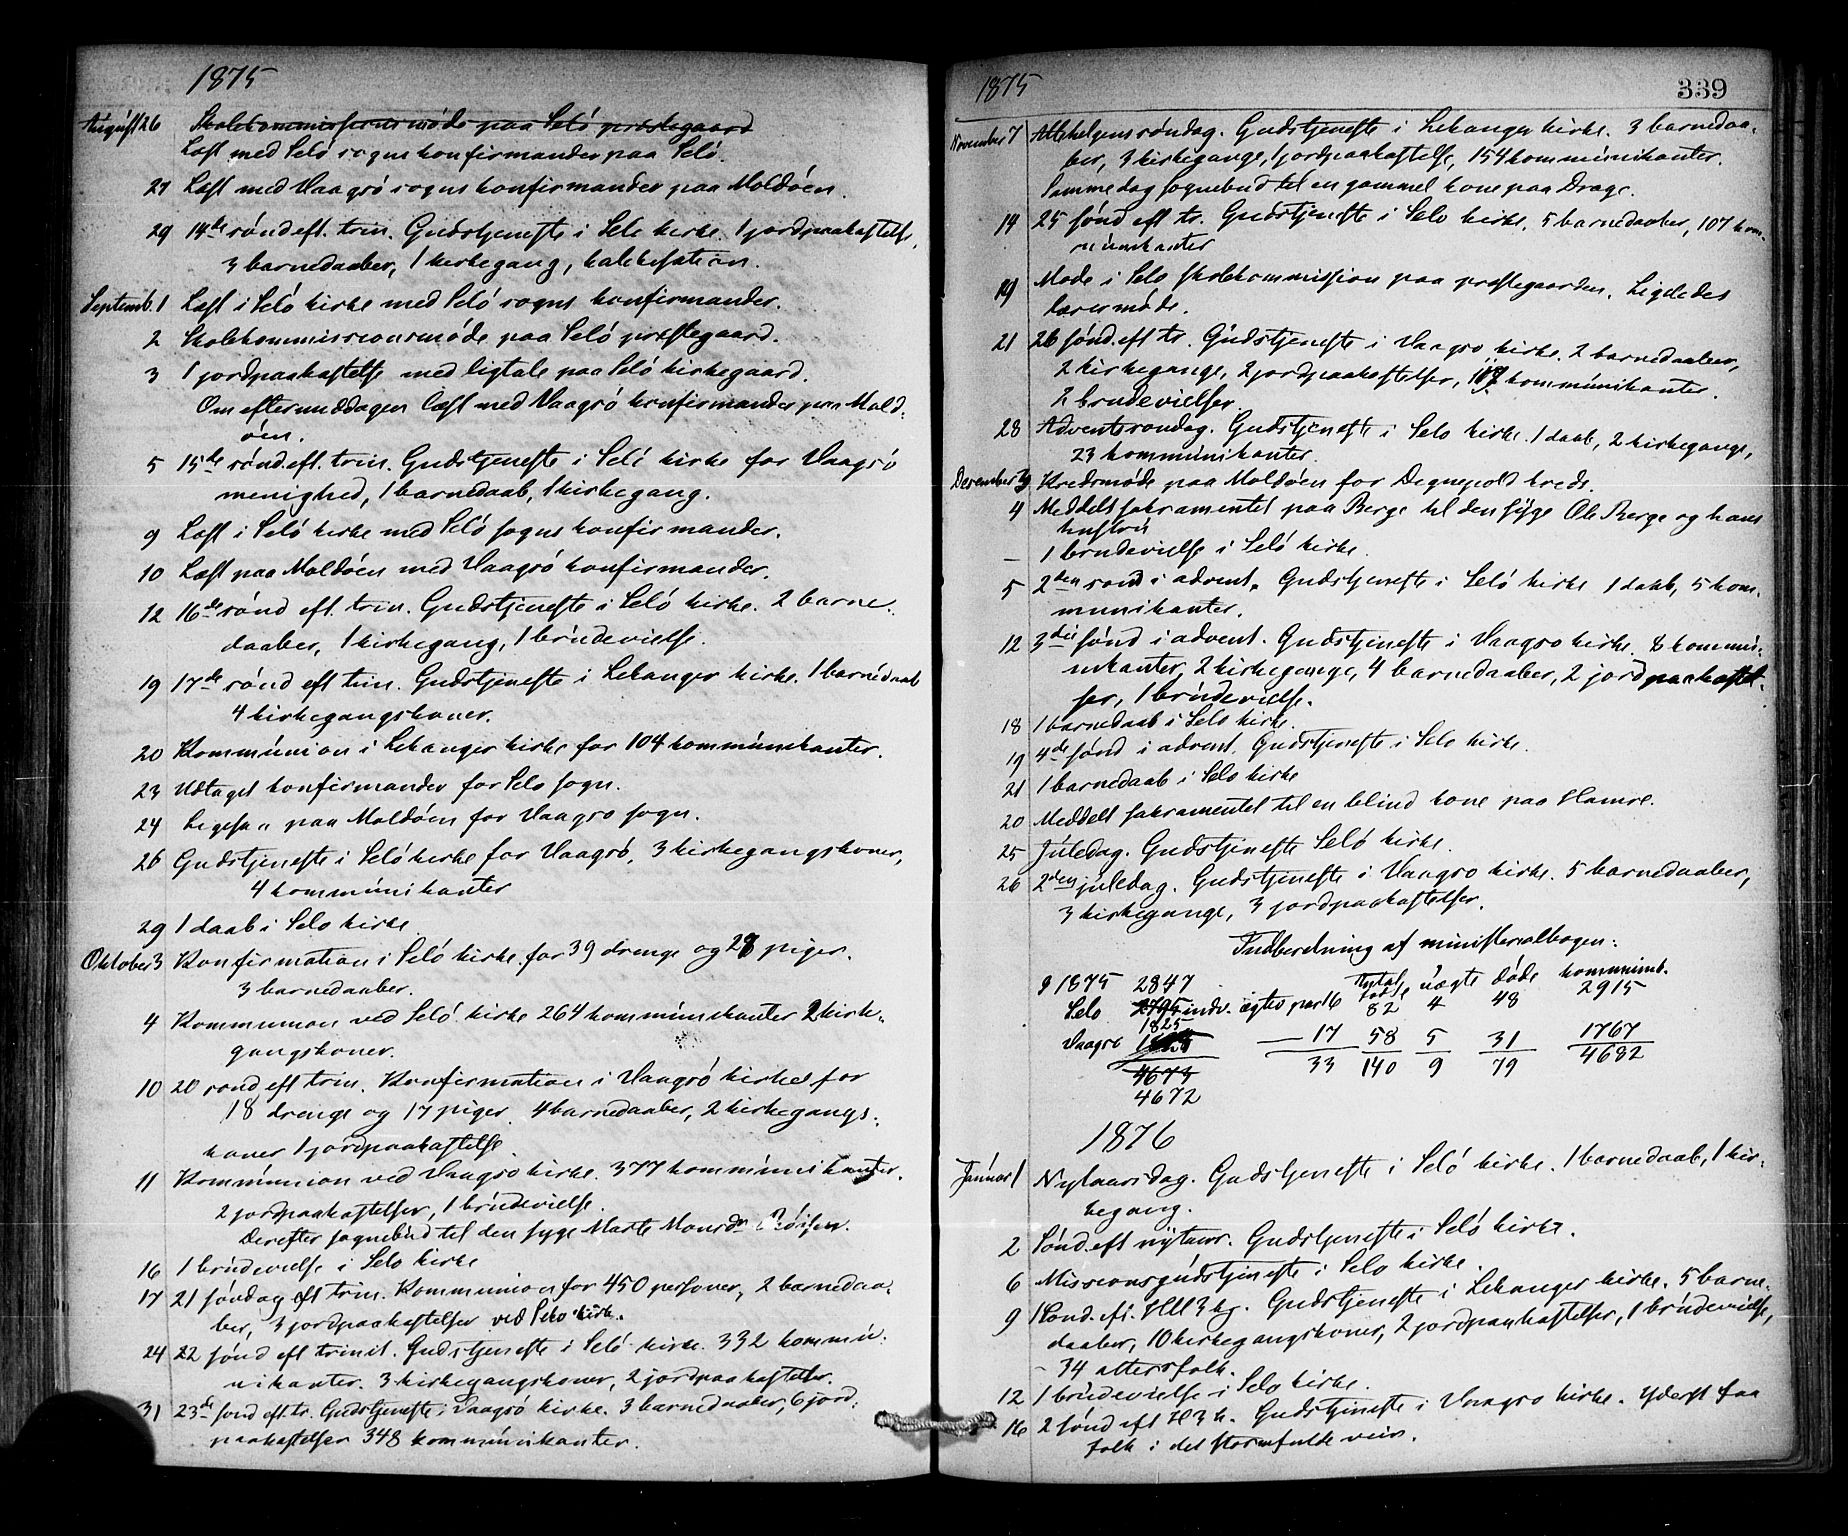 1875
August 26 Skolekommissionsmøde paa Selø præstegaard
Læst med Selø sogns konfirmander paa Selø.
27 Læst med Vaagsø sogns konfirmander paa Moldøen.
29 14de sønd eft. trin. Gudstjeneste i Selø kirke. 1 jordpaakastelse,
3 barnedaaber, 1 kirkegang, katekisation.
Septemb. 1 Læst i Selø kirke med Selø sogns konfirmander.
2 Skolekommissionsmøde paa Selø præstegaard.
3 1 jordpaakastelse med ligtale paa Selø kirkegaard.
Om eftermiddagen læst med Vaagsø konfirmander paa Mold-
øen.
5 15de sønd eft. trin. Gudstjeneste i Selø kirke for Vaagsø
menighed, 1 barnedaab, 1 kirkegang.
9 Læst i Selø kirke med Selø sogns konfirmander.
10 Læst paa Moldøen med Vaagsø konfirmander.
12 16de sønd eft. trin. Gudstjeneste i Selø kirke. 2 barne-
daaber, 1 kirkegang, 1 brudevielse.
19 17de sønd eft trin. Gudstjeneste i Lekanger kirke. 1 barnedaab
4 kirkegangskoner.
20 Kommunion i Lekanger kirke for 104 kommunikanter.
23 Udtaget konfirmander for Selø sogn.
24 Ligesaa paa Moldøen for Vaagsø sogn.
26 Gudstjeneste i Selø kirke for Vaagsø, 3 kirkegangskoner,
4 kommunikanter
29 1 daab i Selø kirke.
Oktober 3 Konfirmation i Selø kirke for 39 drenge og 28 piger.
3 barnedaaber.
4 Kommunion ved Selø kirke 264 kommunikanter 2 kirke-
gangskoner.
10 20 sønd eft trin. Konfirmation i Vaagsø kirke for
18 drenge og 17 piger. 4 barnedaaber, 2 kirkegangs-
koner 1 jordpaakastelse
11 Kommunion ved Vaagsø kirke. 377 kommunikanter.
2 jordpaakastelser, 1 brudevielse.
Derefter sognebud til den syge Marte Monsdr
16 1 brudevielse i Selø kirke
17 21 søndag eft trin. Kommunion for 450 personer, 2 barnedaa-
ber, 3 jordpaakastelser ved Selø kirke.
24 22 sønd eft trinit. Gudstjeneste i Selø kirke. 332 kommu-
nikanter. 3 kirkegangskoner, 2 jordpaakastelser.
31 23de sønd eft. tr. Gudstjeneste i Vaagsø kirke. 3 barnedaaber, 6 jord-
paakastelser 348 kommunikanter.
1875 339
November 7 Allehelgenssøndag. Gudstjeneste i Lekanger kirke. 3 barnedaa-
ber, 3 kirkegange, 1 jordpaakastelse, 154 kommunikanter.
Samme dag sognebud til en gammel kone paa Drage.
14 25 sønd eft tr. Gudstjeneste i Selø kirke. 5 barnedaaber, 107 kom-
munikanter
19 Møde i Selø skolekommission paa præstegaarden. Ligeledes
lærermøde.
21 26 sønd. eft tr. Gudstjeneste i Vaagsø kirke. 2 barnedaaber,
2 kirkegange, 2 jordpaakastelser, kommunikanter.
2 brudevielser.
28 Adventssøndag. Gudstjeneste i Selø kirke. 1 daab, 2 kirkegange,
23 kommunikanter.
December 3 Kredsmøde paa Moldøen for Degnepold kreds.
4 Meddelt sakramentet paa Berge til den syge Ole Berge og hans
hustru
— 1 brudevielse i Selø kirke.
5 2den sønd i advent. Gudstjeneste i Selø kirke 1 daab, 5 kom-
munikanter.
12 3die sønd i advent. Gudstjeneste i Vaagsø kirke. 8 kommu-
nikanter, 2 kirkegange, 4 barnedaaber, 2 jordpaakastel-
ser, 1 brudevielse.
18 1 barnedaab i Selø kirke.
19 4de sønd i advent. Gudstjeneste i Selø kirke.
21 1 barnedaab i Selø kirke
20 Meddelt sakramentet til en blind kone paa Hamre.
25 Juledag. Gudstjeneste Selø kirke.
26 2den juledag. Gudstjeneste i Vaagsø kirke. 5 barnedaaber,
3 kirkegange, 3 jordpaakastelser.
Indberetning af ministerialbogen:
I 1875 2847 Antal fødte uægte døde kommunik.
Selø 2795 indv. ægtev par 16 82 4 48 2915
1825
Vaagsø — 17 58 5 31 1767
4673 33 140 9 79 4682
4672
1876
Januar 1 Nytaarsdag. Gudstjeneste i Selø kirke. 1 barnedaab, 1 kir-
kegang.
2 Sønd. eft nytaar. Gudstjeneste i Selø kirke.
6 Missionsgudstjeneste i Selø kirke.
9 1 Sønd. eft. HH3kg. Gudstjeneste i Lekanger kirke. 5 barne-
daaber, 10 kirkegangskoner, 2 jordpaakastelser, 1 brudevielse,
- 34 altersfolk.
12 1 brudevielse i Selø kirke.
16 2 sønd eft H3k. Gudstjeneste i Vaagsø kirke. Yderst faa
folk i det stormfulde veir.